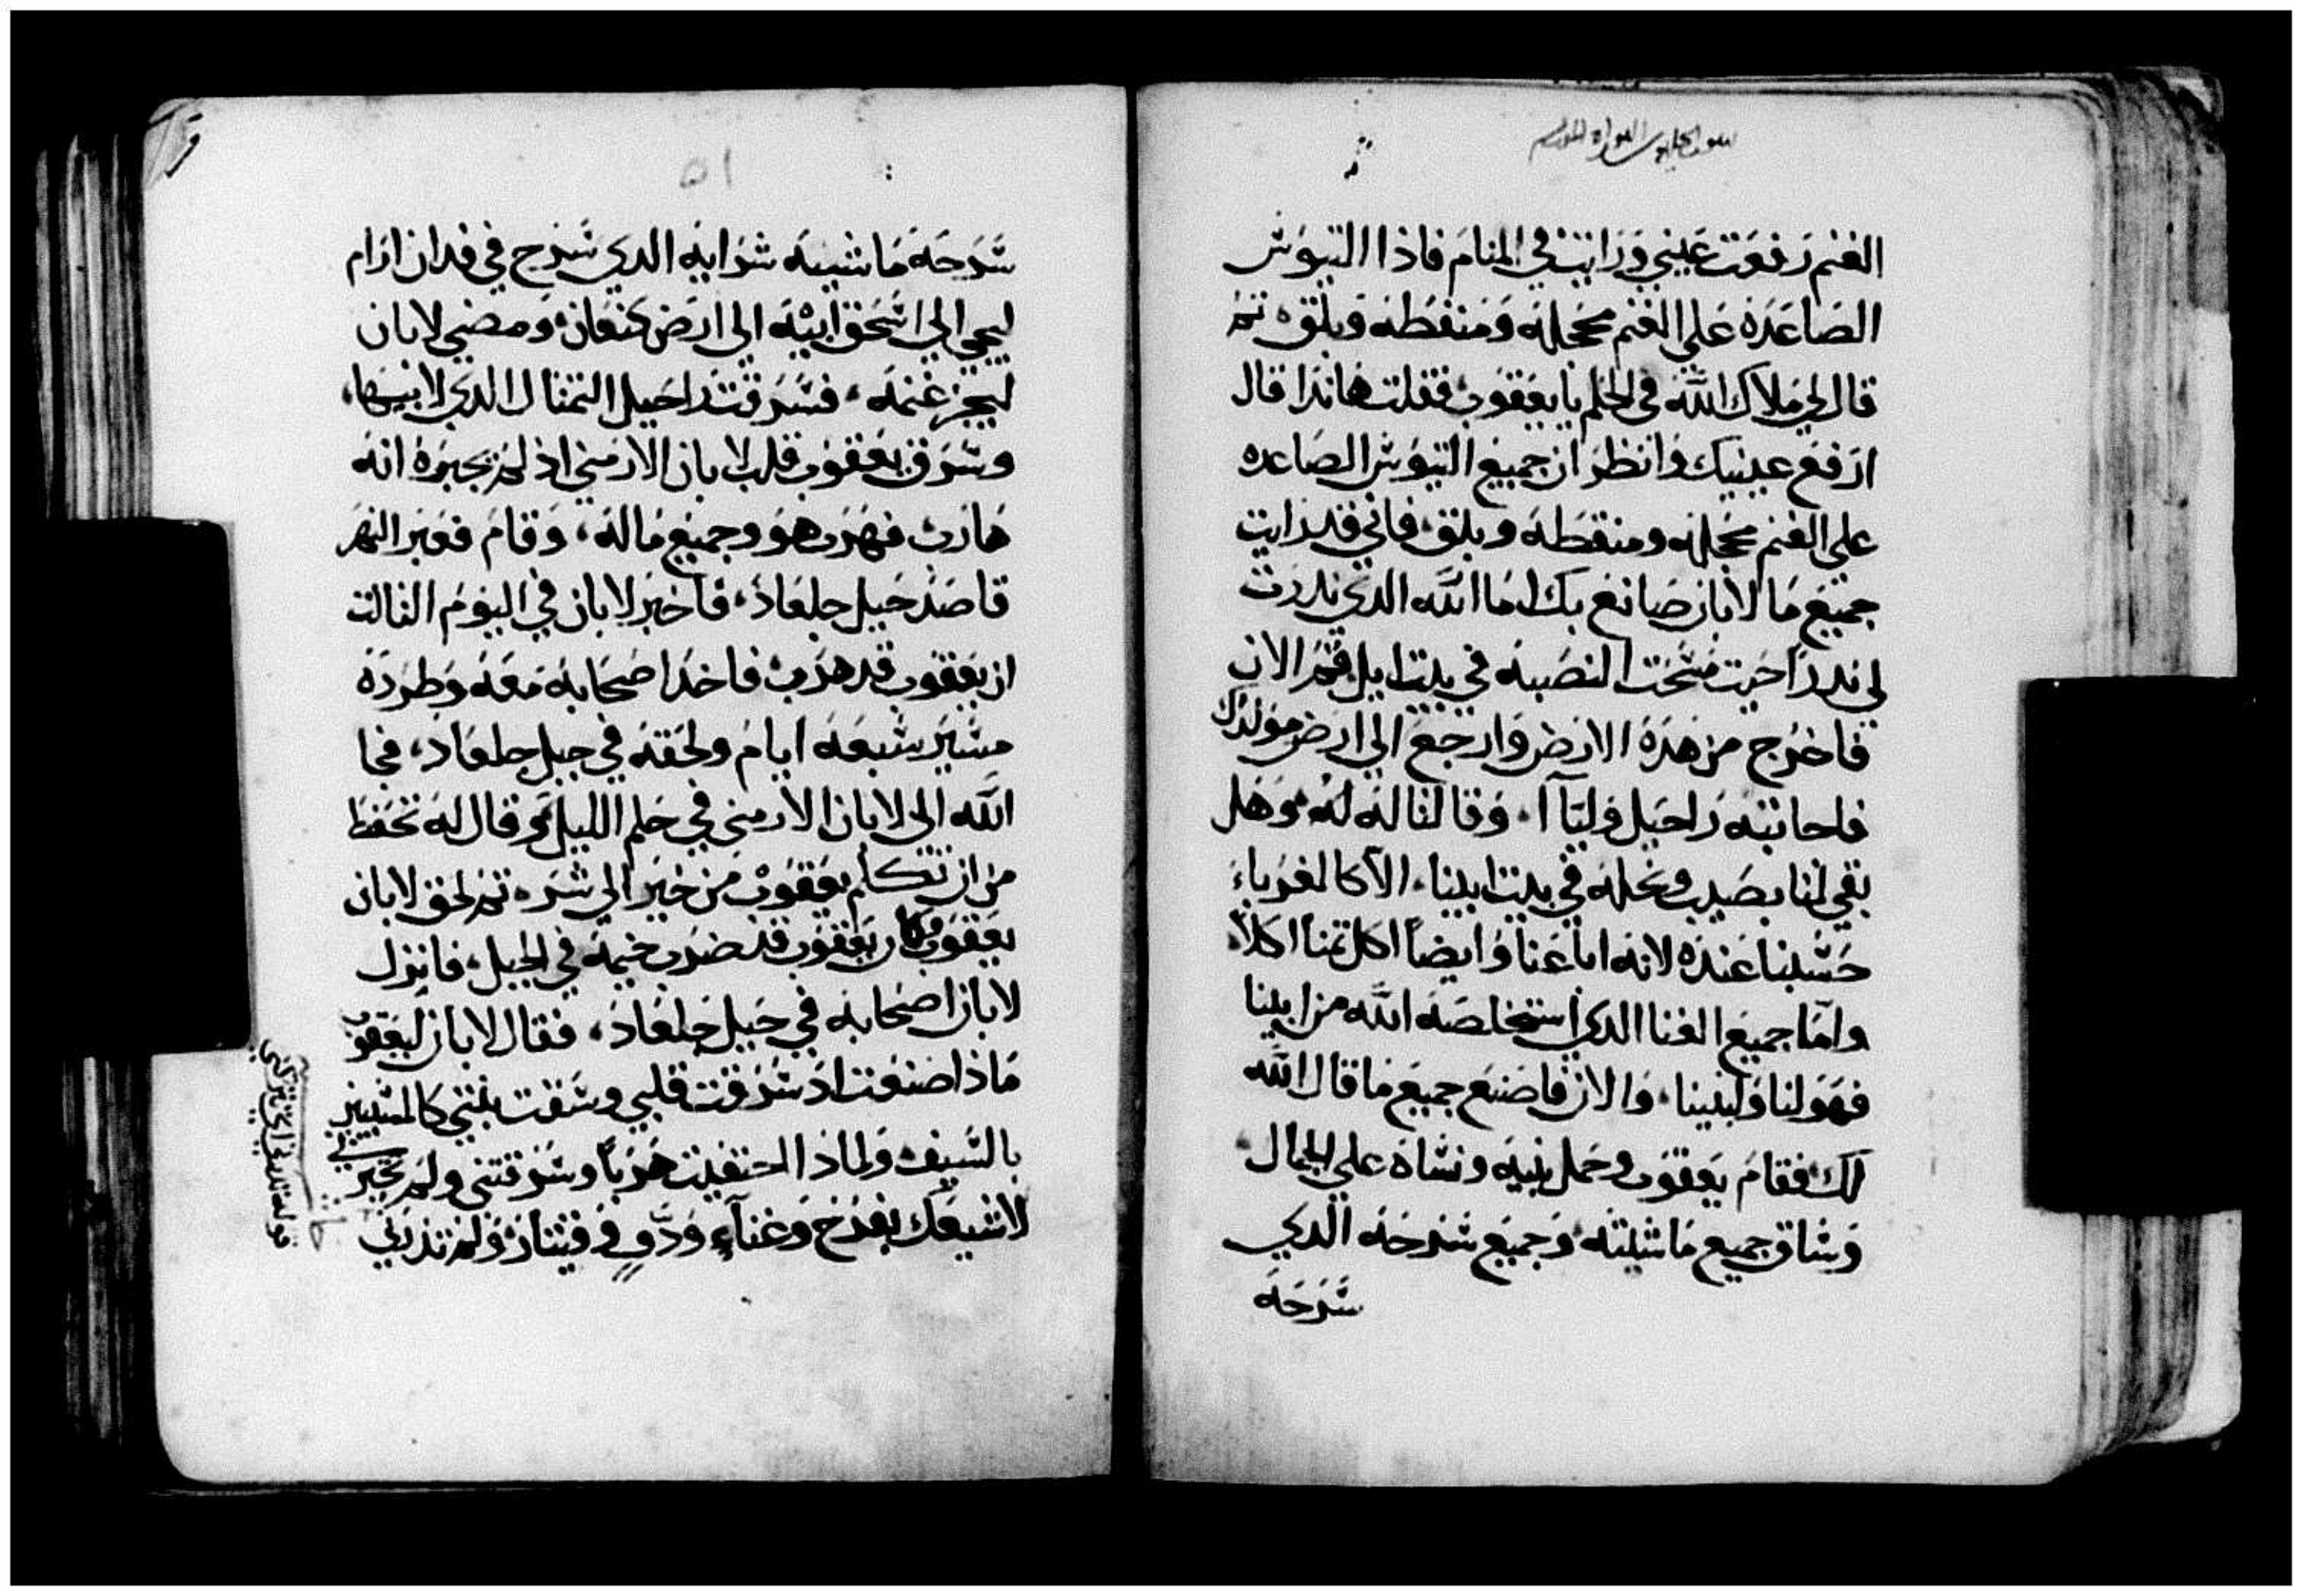 الغنم رفعت عيني ورايت في المنام فاذا التيوش
الصاعده علي الغنم محجله ومنقطه وبلق، ثم
قال لي ملاك الله في الحلم يا يعقوب، فقلت هانذا قال
ارفع عينيك وانظر ان جميع التيوش الصاعده
علي الغنم محجله ومنقطه وبلق، فاني قد رايت
جميع ما لابان صانع بك، انا الله الدي ندرت
لي ندرًا حيت مسحت النصبه في بيت ايل، قم الان
فاخرج من هده الارض وارجع الي ارض مولدك
فاجابته راحيل وليّاآ، وقالتا له له، وهل
بقي لنا نصيب ونحله في بيت ابينا، الا كالغرباء
حسبنا عنده لانه اباعنا وايضاً اكل تمننا اكلاً
وامّا جميع الغنا الدي استخلصه الله من ابينا
فهو لنا ولبنينا، والان فاصنع جميع ما قال الله
لك، فقام يعقوب وحمل بنيه ونساه علي الجمال
وساق جميع ماشيته، وجميع سرحه الدي
سرحه
٥١
سرحه ماشيه شرايه الدي سرح في فدان ارام
ليجي الي اسحق ابيه الي ارض كنعان، ومضي لابان
ليجز غنمه، فسرقت راحيل التمتال الدي لابيها،
وسرق يعقوب قلب لابان الارمني اذ لم يخبره انه
هارب، فهرب هو وجميع ماله، وقام فعبر النهر
قاصد جبل جلعاد، فاخبر لابان في اليوم التالت
ان يعقوب قد هرب، فاخد اصحابه معه وطرده
مسير سبعه ايام ولحقه في جبل جلعاد، فجا
الله الي لابان الارمني في حلم الليل وقال له تحفظ
من ان تتكلم يعقوب من خير الي شر، ثم لحق لابان
يعقوب وكان يعقوب قد ضرب خيمه في الجبل، فانزل
لابان اصحابه في جبل جلعاد، فقال لابان ليعقوب
ماذا صنعت اذ سرقت قلبي وسقت بنتي كالمسبيين
بالسيف، ولماذا اختفيت هرباً وسرقتني ولم تخبرني
لاشيعك بفرح وغناء ودف وقيتار، ولم تدرني